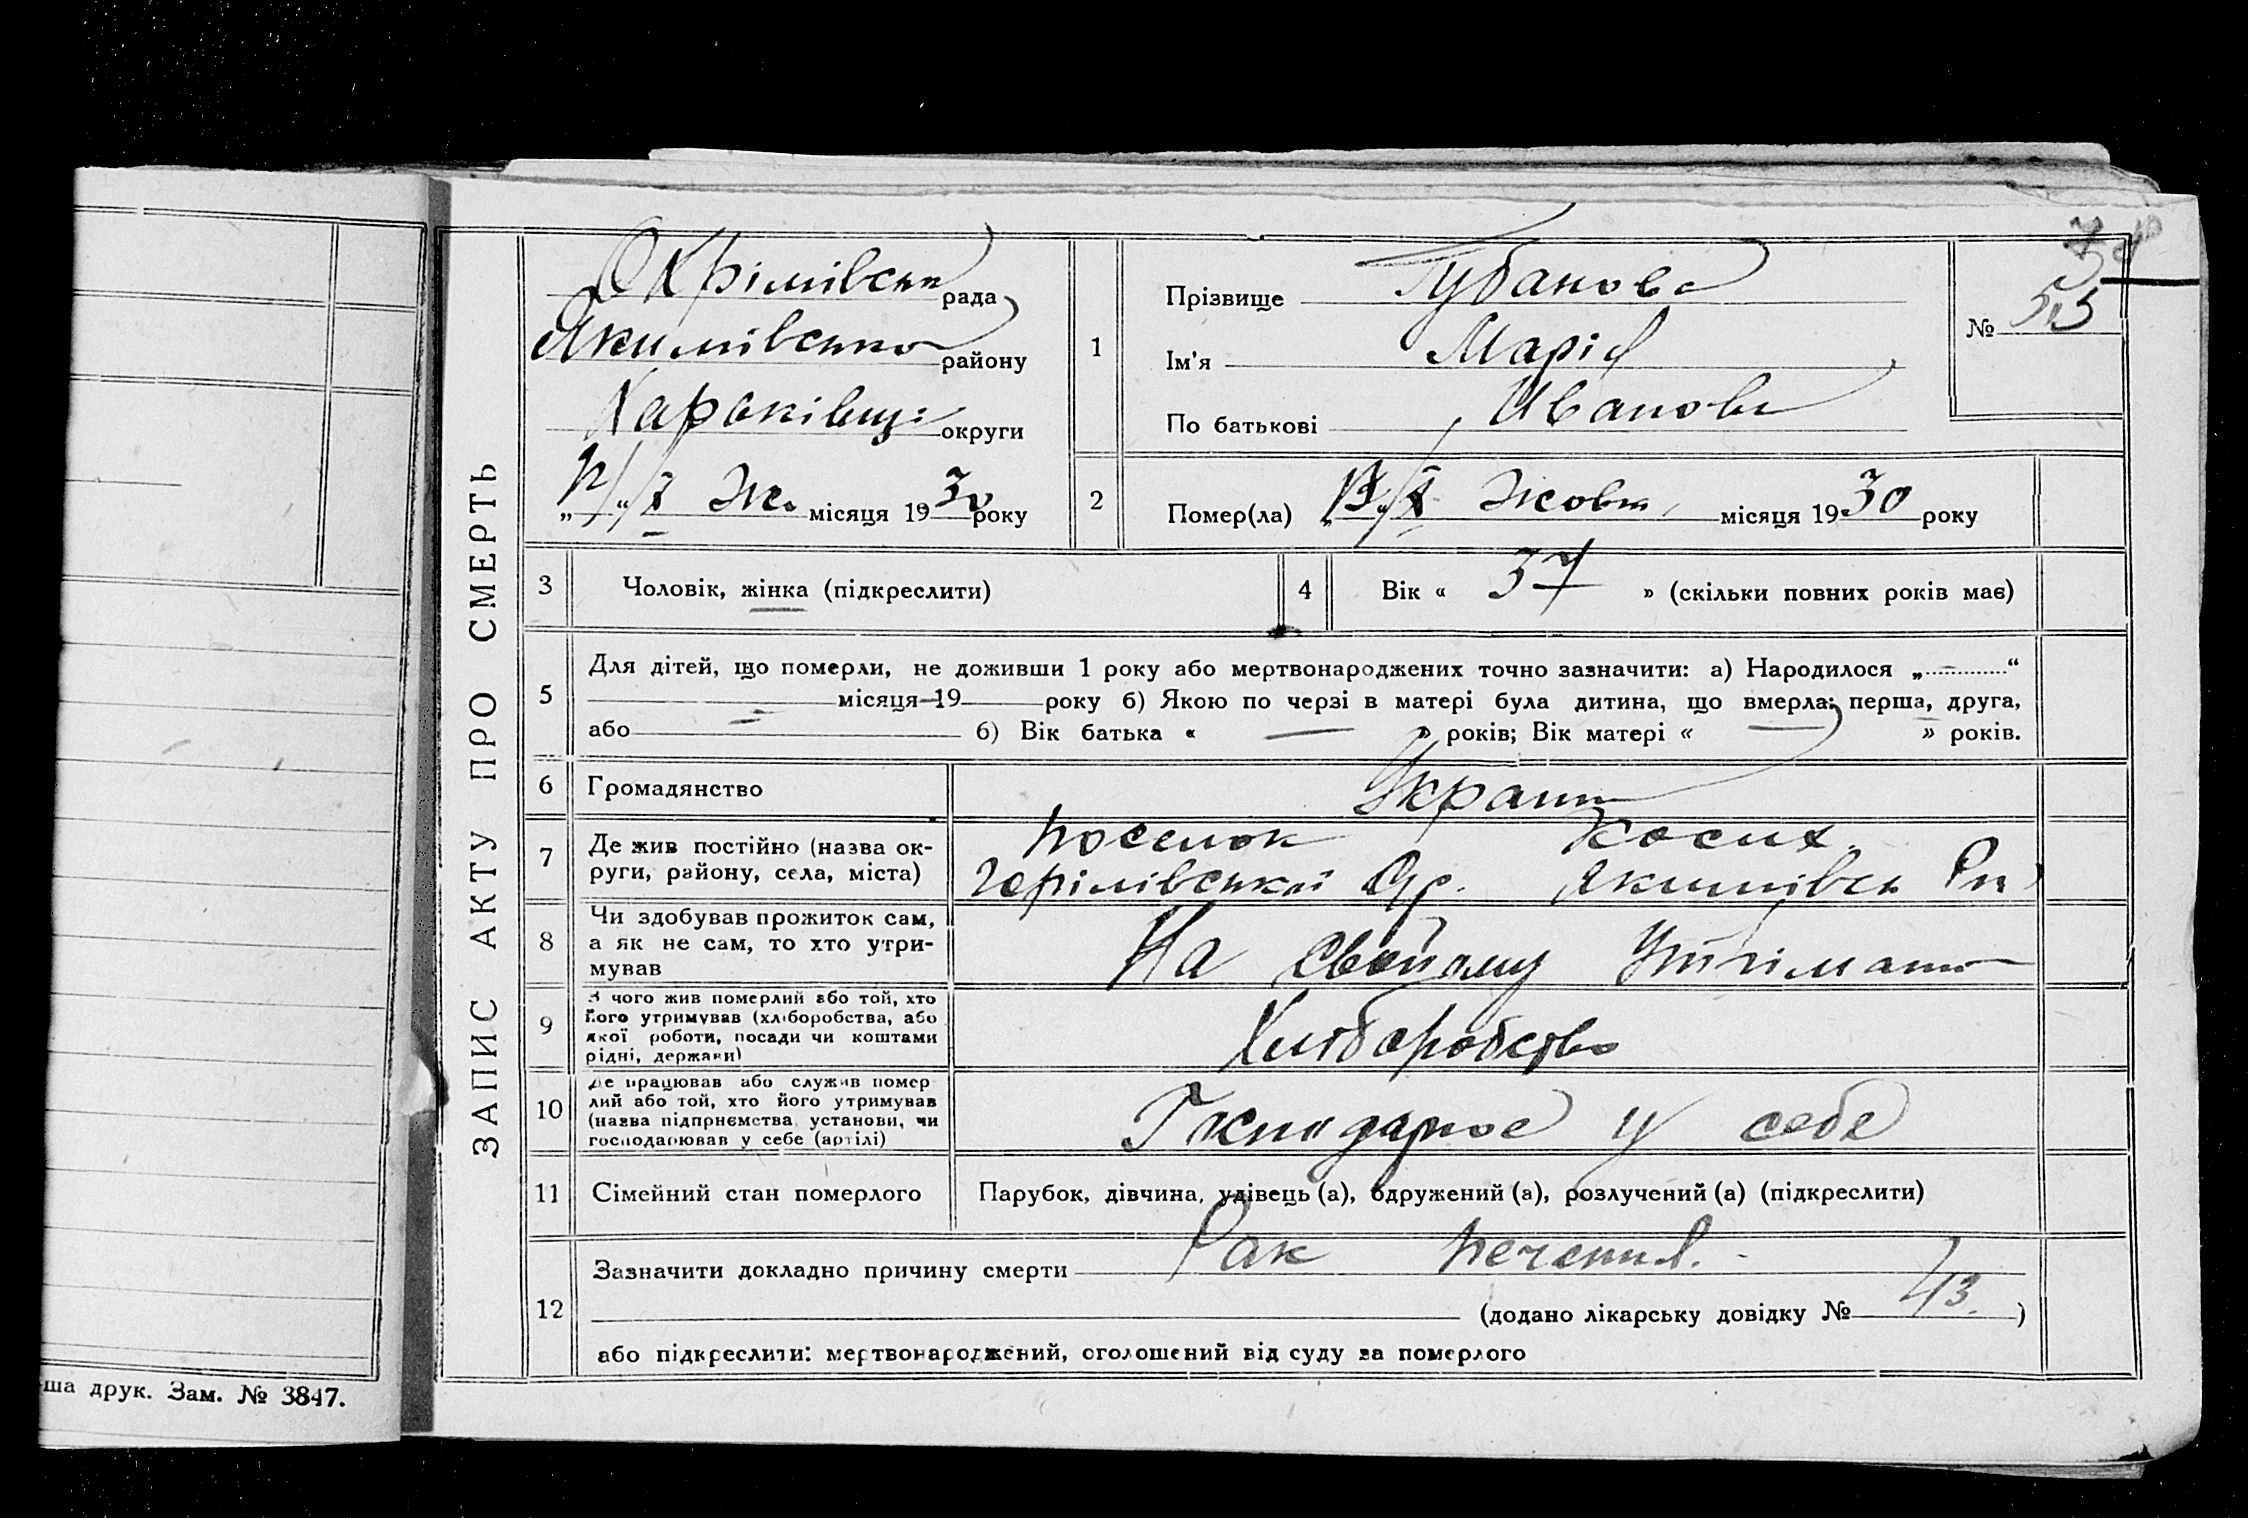 ЗАПИС АКТУ ПРО СМЕРТЬ
Охрімівськ рада
Якимівсько району
округи
місяця 1930 року
1
Прізвище Губанова
Ім'я Марія
По батькові Иванові
№ 55
2
Помер(ла) Жовт, місяця 1930 року
3
Чоловік, жінка (підкреслити)
4
Вік « 37 » (скільки повних років має)
5
Для дітей, що померли, не доживши 1 року або мертвонароджених точно зазначити: а) Народилося „ — “
місяця 19 року б) Якою по черзі в матері була дитина, що вмерла: перша, друга,
або б) Вік батька « — » років; Вік матері « — » років.
6
Громадянство
Украин
7
Де жив постійно (назва ок-
руги, району, села, міста)
поселок Косих
Якимівськ Рн
8
Чи здобував прожиток сам,
а як не сам, то хто утри-
мував
На свойому утрімани
9
З чого жив померлий або той, хто
його утримував (хліборобства, або
якої роботи, посади чи коштами
рідні, держави)
Хліборобство
10
Де працював або служив помер
лий або той, хто його утримував
(назва підприємства, установи, чи
господарював у себе (артілі)
у себе
11
Сімейний стан померлого
Парубок, дівчина, удівець (а), одружений (а), розлучений (а) (підкреслити)
12
Зазначити докладно причину смерти Рак печення.
(додано лікарську довідку № 43. )
або підкреслити: мертвонароджений, оголошений від суду за померлого
ша друк. Зам. № 3847.